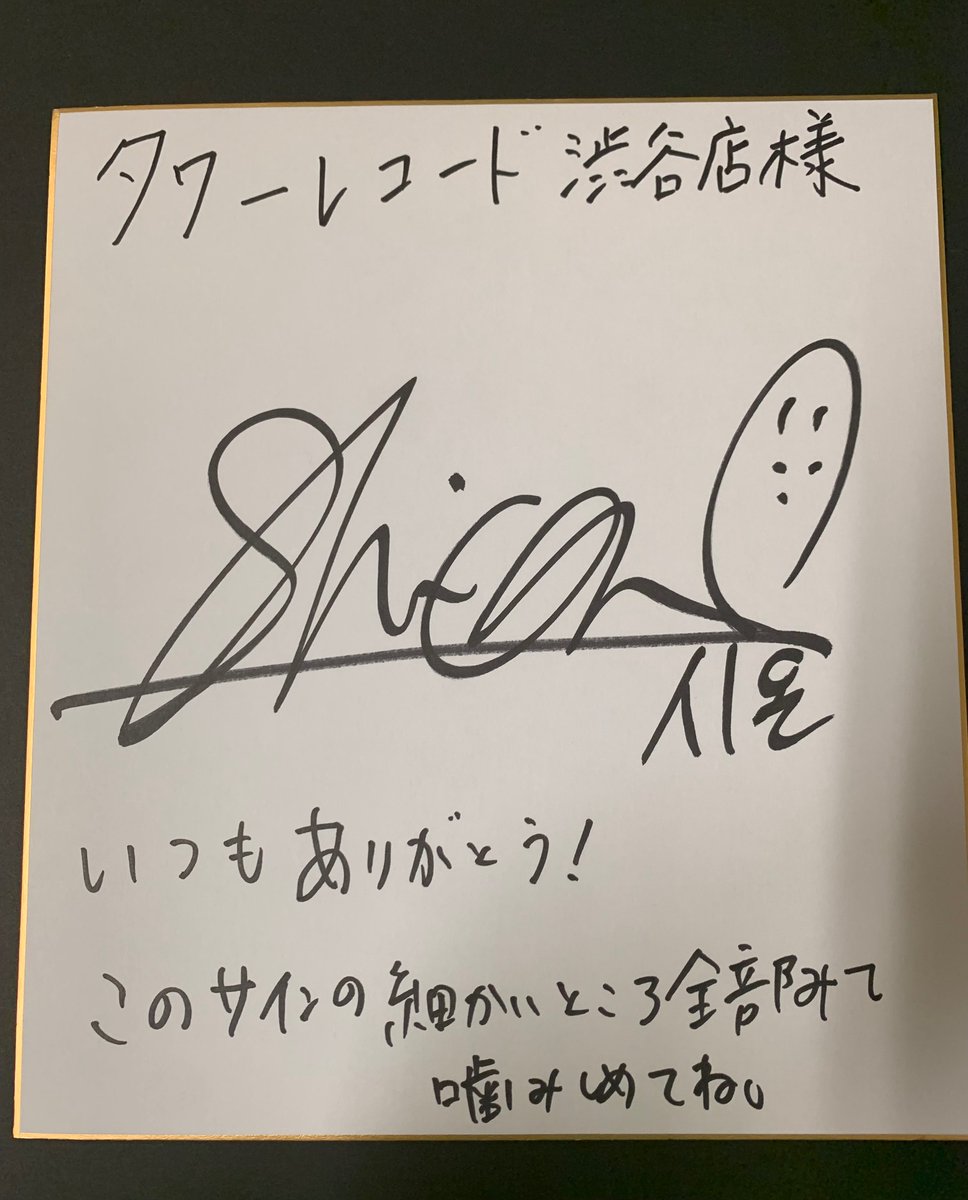 タワーレコード 渋谷店様
Shion
시온
いつもありがとう!
このサインの細かいところ全部みて
噛みしめてね。